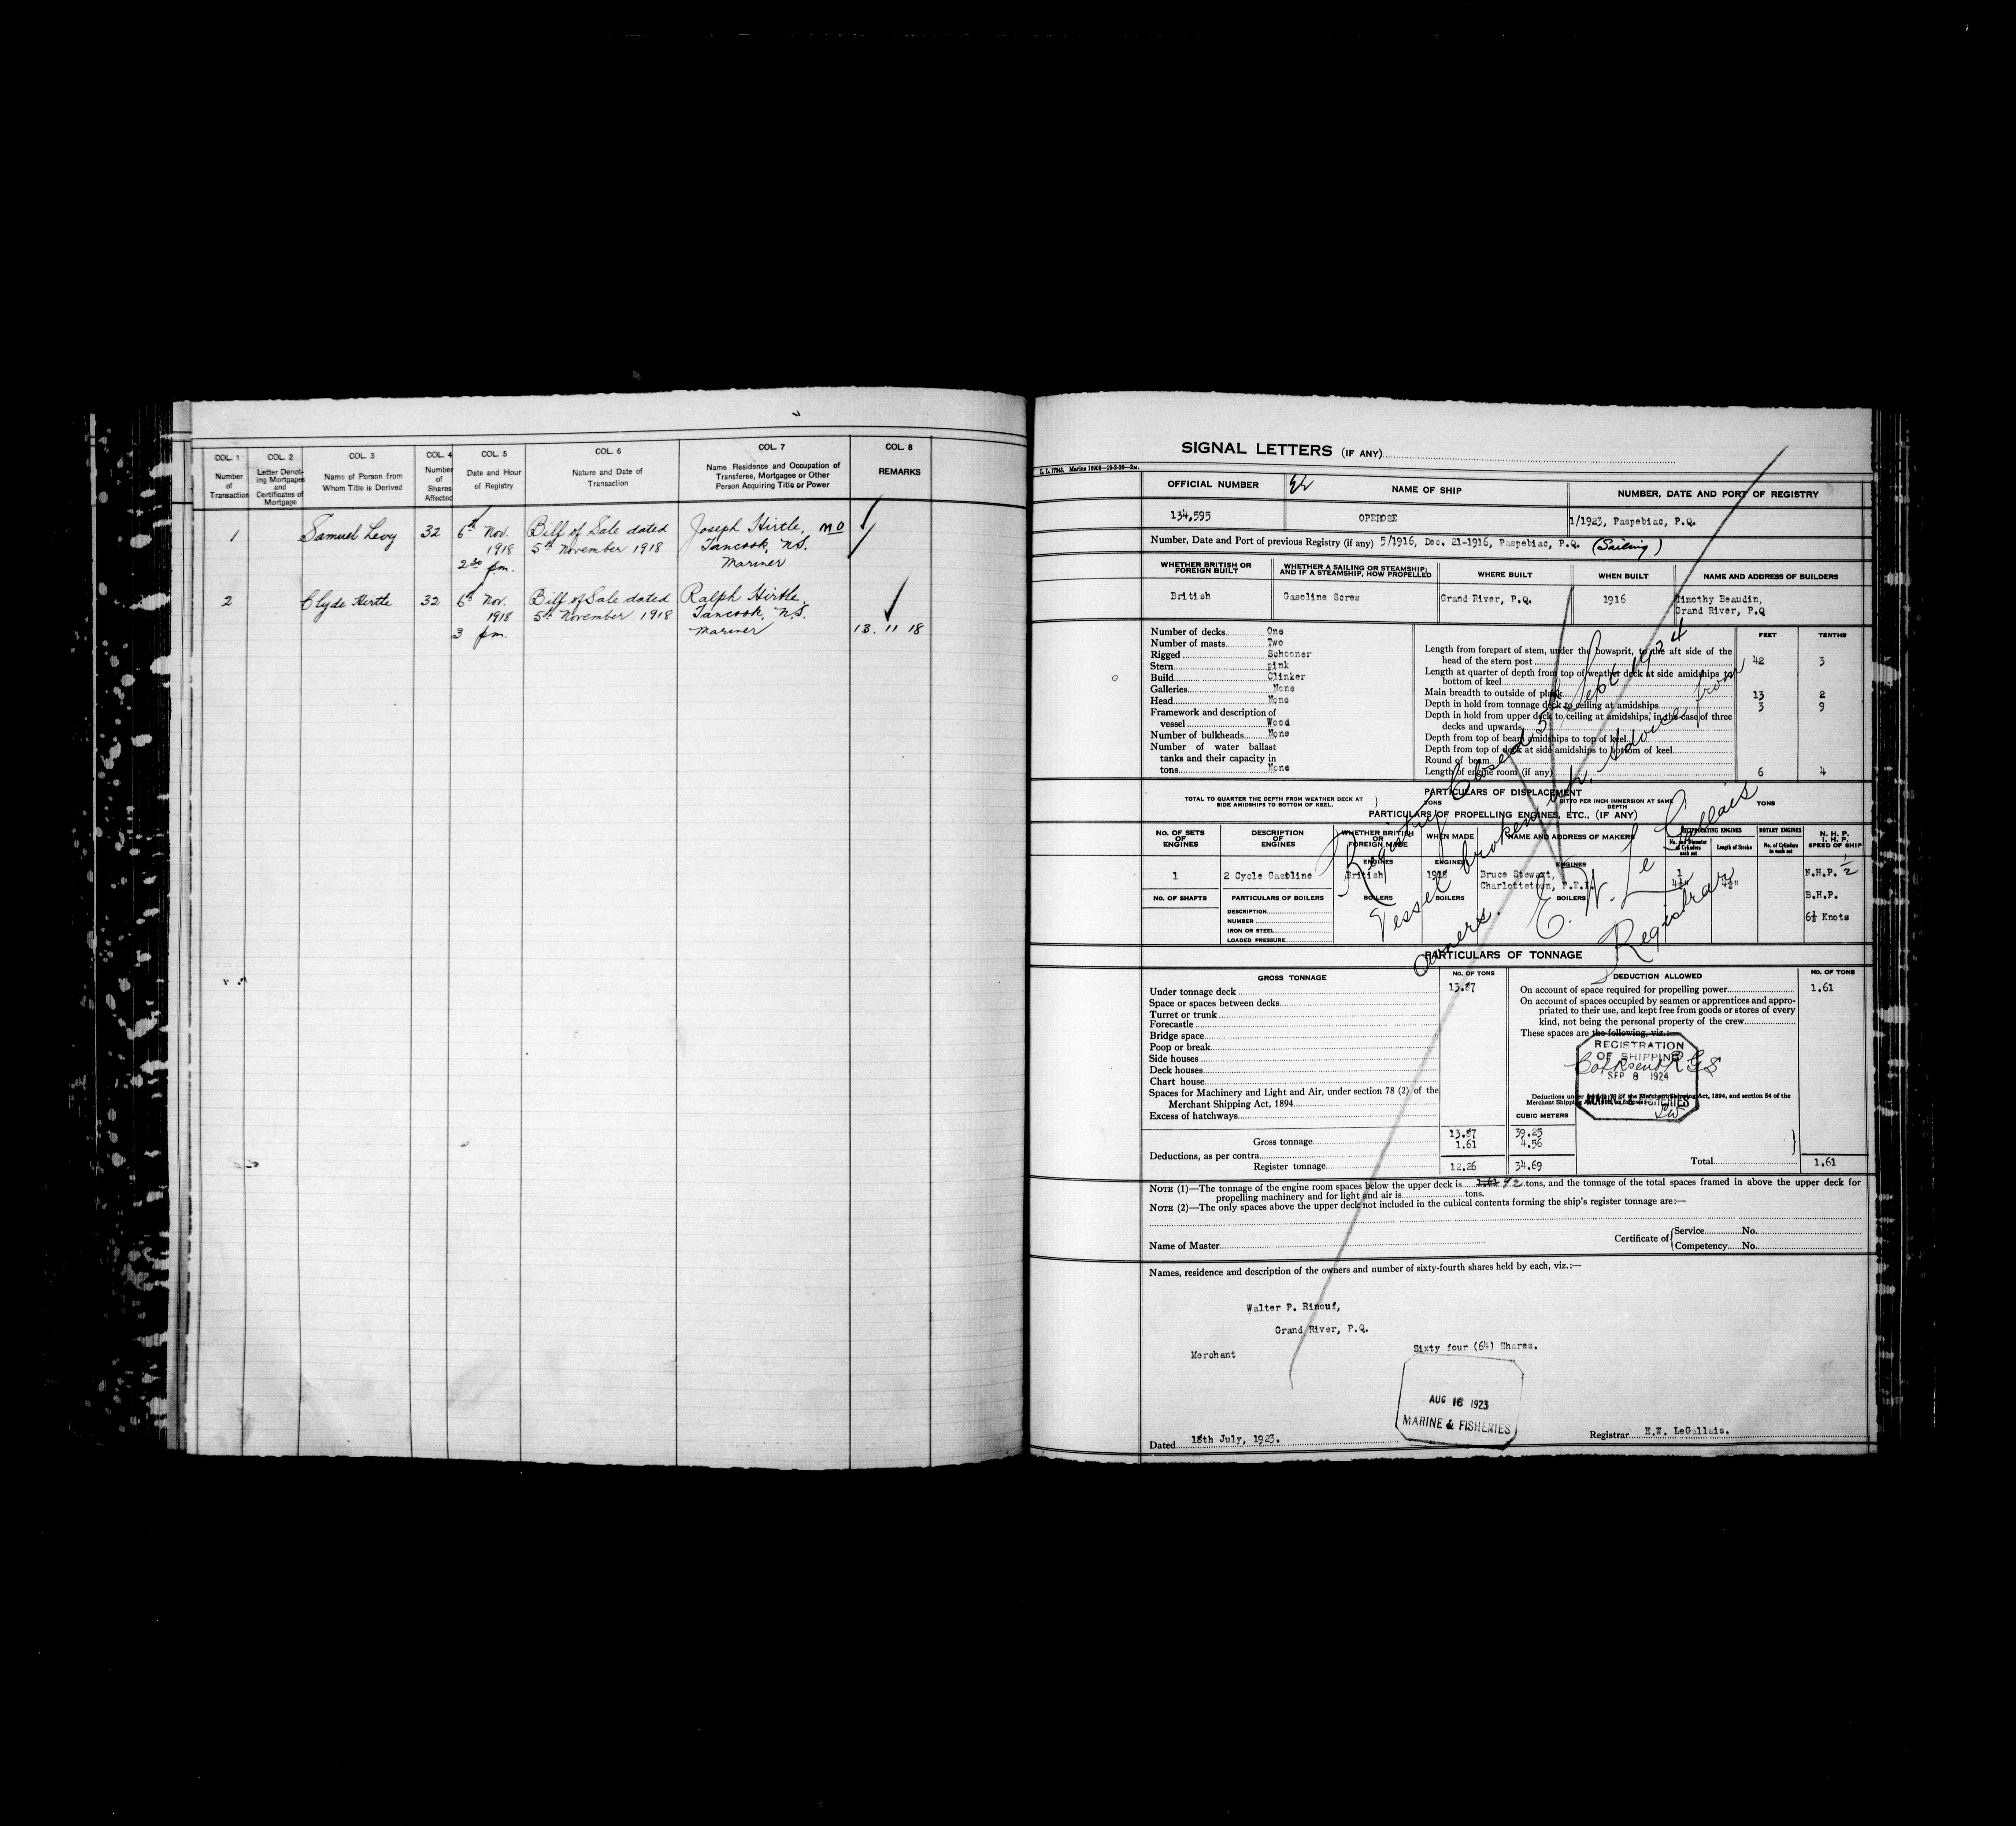 COL. 1 COL. 2 COL. 3 COL. 4 COL. 5 COL. 6 COL. 7 COL. 8
Number of Transaction
Letter Denoting Mortgages and Certificates of Mortgage
Name of Person from Whom Title is Derived
Number of Shares Affected
Date and Hour of Registry
Nature and Date of Transaction
Name Residence and Occupation of Transferee, Mortgagee or Other Person Acquiring Title or Power
REMARKS
1 Samuel Levy 32 6th Nov. Bill of Sale dated Joseph Hirtle, MO
1918 5th November 1918 Tancook, N.S.
2 30 p.m. Mariner
2 Clyde Hirtle 32 6th Nov. Bill of Sale dated Ralph Hirtle,
1918 5th November 1918 Tancook, N.S.
3 p.m. Mariner 13. 11 18
SIGNAL LETTERS (IF ANY)
L. I. 77243. Marine 16909—19-3-20—2M.
OFFICIAL NUMBER NAME OF SHIP NUMBER, DATE AND PORT OF REGISTRY
134,595 OPEROSE 1/1923, Paspebiac, P.Q.
Number, Date and Port of previous Registry (if any) 5/1916, Dec. 21-1916, Paspebiac, P.Q. (Sailing)
WHETHER BRITISH OR FOREIGN BUILT
WHETHER A SAILING OR STEAMSHIP; AND IF A STEAMSHIP, HOW PROPELLED
WHERE BUILT
WHEN BUILT
NAME AND ADDRESS OF BUILDERS
British Gasoline Screw Grand River, P.Q. 1916 Timothy Beaudin,
Grand River, P.Q
Number of decks One
Number of masts Two
Rigged Schooner
Stern pink
Build Clinker
Galleries None
Head None
Framework and description of
vessel Wood
Number of bulkheads None
Number of water ballast
tanks and their capacity in
tons None
FEET TENTHS
Length from forepart of stem, under the bowsprit, to the aft side of the
head of the stern post 42 3
Length at quarter of depth from top of weather deck at side amidships to
bottom of keel
Main breadth to outside of plank 13 2
Depth in hold from tonnage deck to ceiling at amidships 3 9
Depth in hold from upper deck to ceiling at amidships, in the case of three
decks and upwards
Depth from top of beam amidships to top of keel
Depth from top of deck at side amidships to bottom of keel
Round of beam
Length of engine room (if any) 6 4
Registry Closed 5th Sept 1924
Vessel broken up. Advice from
owners. E. W. Le Gallais
Registrar
PARTICULARS OF DISPLACEMENT
TOTAL TO QUARTER THE DEPTH FROM WEATHER DECK AT
SIDE AMIDSHIPS TO BOTTOM OF KEEL.
TONS
DITTO PER INCH IMMERSION AT SAME
DEPTH
TONS
PARTICULARS OF PROPELLING ENGINES, ETC., (IF ANY)
No. OF SETS OF ENGINES
DESCRIPTION OF ENGINES
WHETHER BRITISH OR FOREIGN MADE
WHEN MADE
NAME AND ADDRESS OF MAKERS
RECIPROCATING ENGINES
No. and Diameter of Cylinders each set
Length of Stroke
ROTARY ENGINES
No. of Cylinders in each set
N. H. P.
I. H. P.
SPEED OF SHIP
ENGINES ENGINES ENGINES
1 2 Cycle Gasoline British 1918 Bruce Stewart, 1 N.H.P. 1/2
Charlottetown, P.E.I. 4½" 4½"
No. OF SHAFTS PARTICULARS OF BOILERS BOILERS BOILERS BOILERS B.H.P.
DESCRIPTION
NUMBER 6½ Knots
IRON OR STEEL
LOADED PRESSURE
PARTICULARS OF TONNAGE
GROSS TONNAGE No. OF TONS DEDUCTION ALLOWED No. OF TONS
Under tonnage deck 13.87
Space or spaces between decks
Turret or trunk
Forecastle
Bridge space
Poop or break
Side houses
Deck houses
Chart house
Spaces for Machinery and Light and Air, under section 78 (2) of the
Merchant Shipping Act, 1894
Excess of hatchways
On account of space required for propelling power 1.61
On account of spaces occupied by seamen or apprentices and appro-
priated to their use, and kept free from goods or stores of every
kind, not being the personal property of the crew
These spaces are the following, viz.:—
REGISTRATION
OF SHIPPING
SEP 8 1924
MARINE & FISHERIES
Deductions under section 79 of the Merchant Shipping Act, 1894, and section 54 of the
CUBIC METERS
Gross tonnage 13.87 39.25
Deductions, as per contra 1.61 4.56
Register tonnage 12.26 34.69
Total 1.61
NOTE (1)—The tonnage of the engine room spaces below the upper deck is 92 tons, and the tonnage of the total spaces framed in above the upper deck for
propelling machinery and for light and air is tons.
NOTE (2)—The only spaces above the upper deck not included in the cubical contents forming the ship's register tonnage are:—
Name of Master
Certificate of Service No.
Competency No.
Names, residence and description of the owners and number of sixty-fourth shares held by each, viz.:—
Walter P. Rinouf,
Grand River, P.Q.
Merchant Sixty four (64) Shares.
AUG 16 1923
MARINE & FISHERIES
Dated 18th July, 1923.
Registrar E.W. LeGallais.